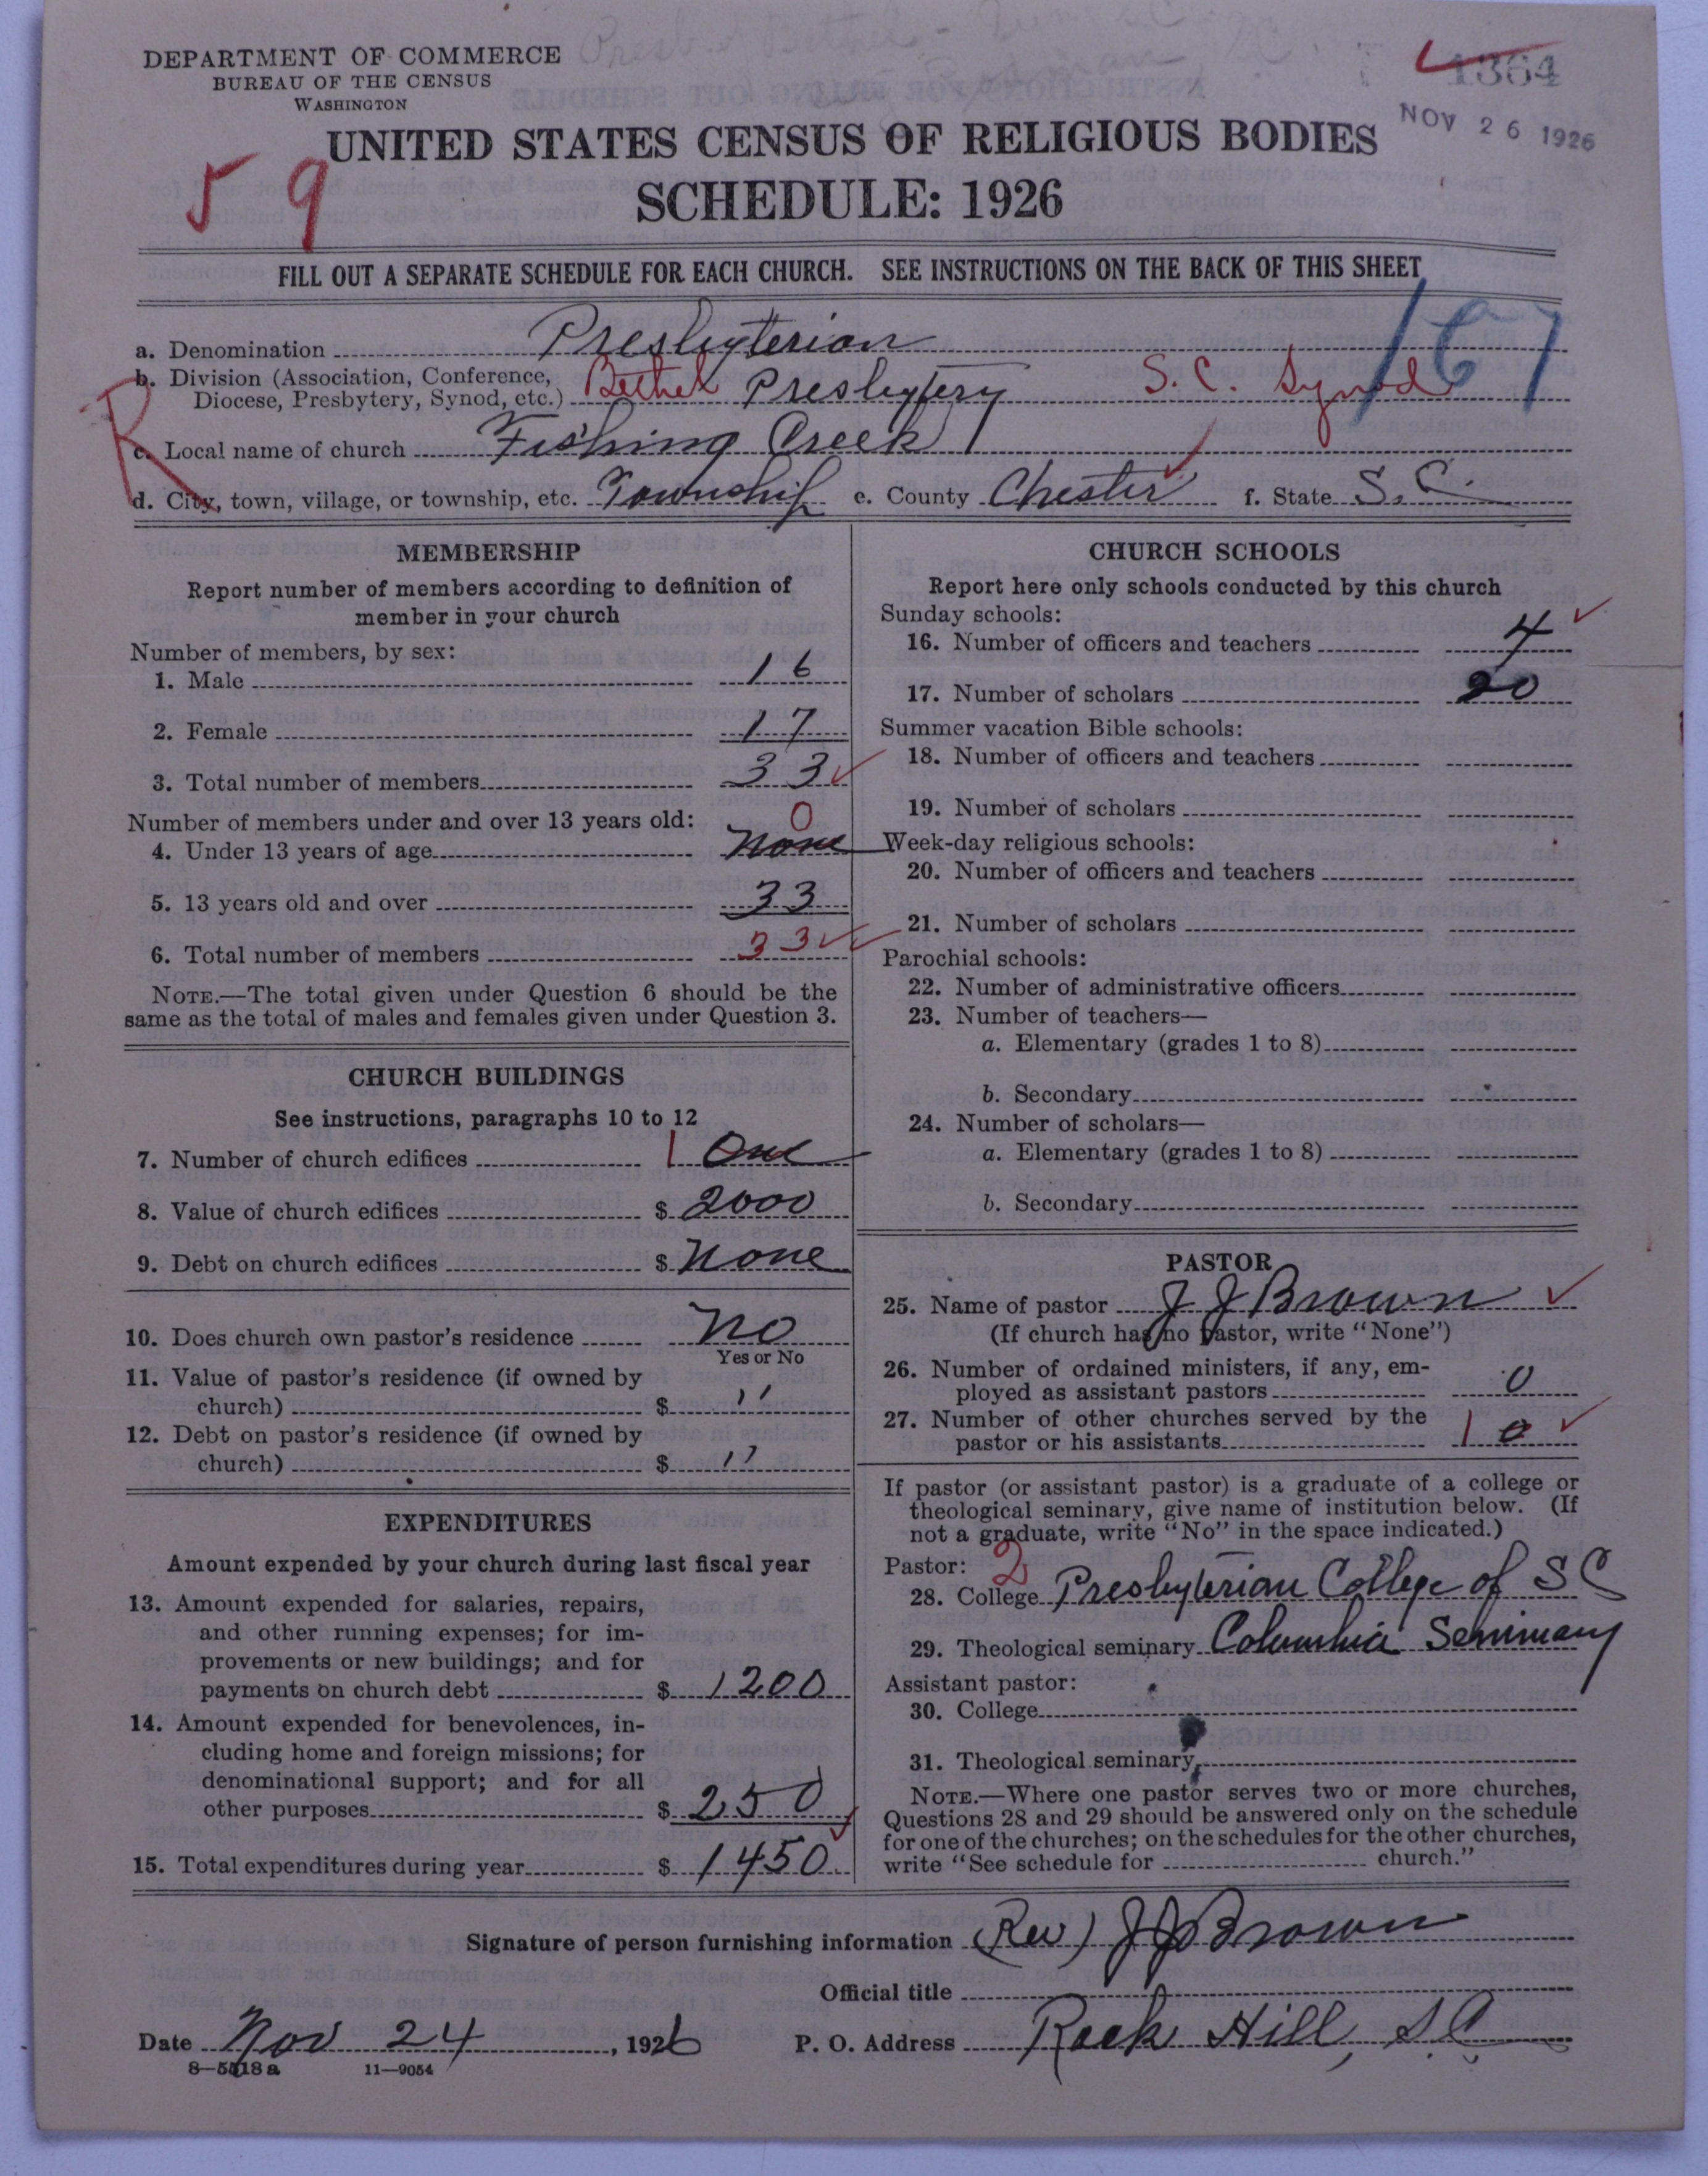 1364
DEPARTMENT OF COMMERCE
BUREAU OF THE CENSUS
WASHINGTON
NOV 26 1926
UNITED STATES CENSUS OF RELIGIOUS BODIES
59
SCHEDULE: 1926
FILL OUT A SEPARATE SCHEDULE FOR EACH CHURCH. SEE INSTRUCTIONS ON THE BACK OF THIS SHEET
167
a. Denomination Presbyterian
b. Division (Association, Conference,
Diocese, Presbytery, Synod, etc.) Bethel Presbytery S.C. Synod
R
c. Local name of church Fishing Creek
d. City, town, village, or township, etc. Township e. County Chester f. State S.C.
MEMBERSHIP
Report number of members according to definition of
member in your church
Number of members, by sex:
1. Male 16
2. Female 17
3. Total number of members 33
Number of members under and over 13 years old:
0
4. Under 13 years of age None
5. 13 years old and over 33
6. Total number of members 33
NOTE.—The total given under Question 6 should be the
same as the total of males and females given under Question 3.
CHURCH BUILDINGS
See instructions, paragraphs 10 to 12
7. Number of church edifices 1 One
8. Value of church edifices $ 2000
9. Debt on church edifices $ None
10. Does church own pastor's residence No
Yes or No
11. Value of pastor's residence (if owned by
church) $ "
12. Debt on pastor's residence (if owned by
church) $ "
EXPENDITURES
Amount expended by your church during last fiscal year
13. Amount expended for salaries, repairs,
and other running expenses; for im-
provements or new buildings; and for
payments on church debt $ 1200
14. Amount expended for benevolences, in-
cluding home and foreign missions; for
denominational support; and for all
other purposes $ 250
15. Total expenditures during year $ 1450
CHURCH SCHOOLS
Report here only schools conducted by this church
Sunday schools:
16. Number of officers and teachers 4
17. Number of scholars 20
Summer vacation Bible schools:
18. Number of officers and teachers
19. Number of scholars
Week-day religious schools:
20. Number of officers and teachers
21. Number of scholars
Parochial schools:
22. Number of administrative officers
23. Number of teachers—
a. Elementary (grades 1 to 8)
b. Secondary
24. Number of scholars—
a. Elementary (grades 1 to 8)
b. Secondary
PASTOR
25. Name of pastor J J Brown
(If church has no pastor, write "None")
26. Number of ordained ministers, if any, em-
ployed as assistant pastors 0
27. Number of other churches served by the
pastor or his assistants 1 0
If pastor (or assistant pastor) is a graduate of a college or
theological seminary, give name of institution below. (If
not a graduate, write "No" in the space indicated.)
Pastor: 2
28. College Presbyterian College of S C
29. Theological seminary Columbia Seminary
Assistant pastor:
30. College
31. Theological seminary
NOTE.—Where one pastor serves two or more churches,
Questions 28 and 29 should be answered only on the schedule
for one of the churches; on the schedules for the other churches,
write "See schedule for church."
Signature of person furnishing information (Rev) J J Brown
Official title
Date Nov 24, 1926 P. O. Address Rock Hill, S.C.
8—5518a 11—9054